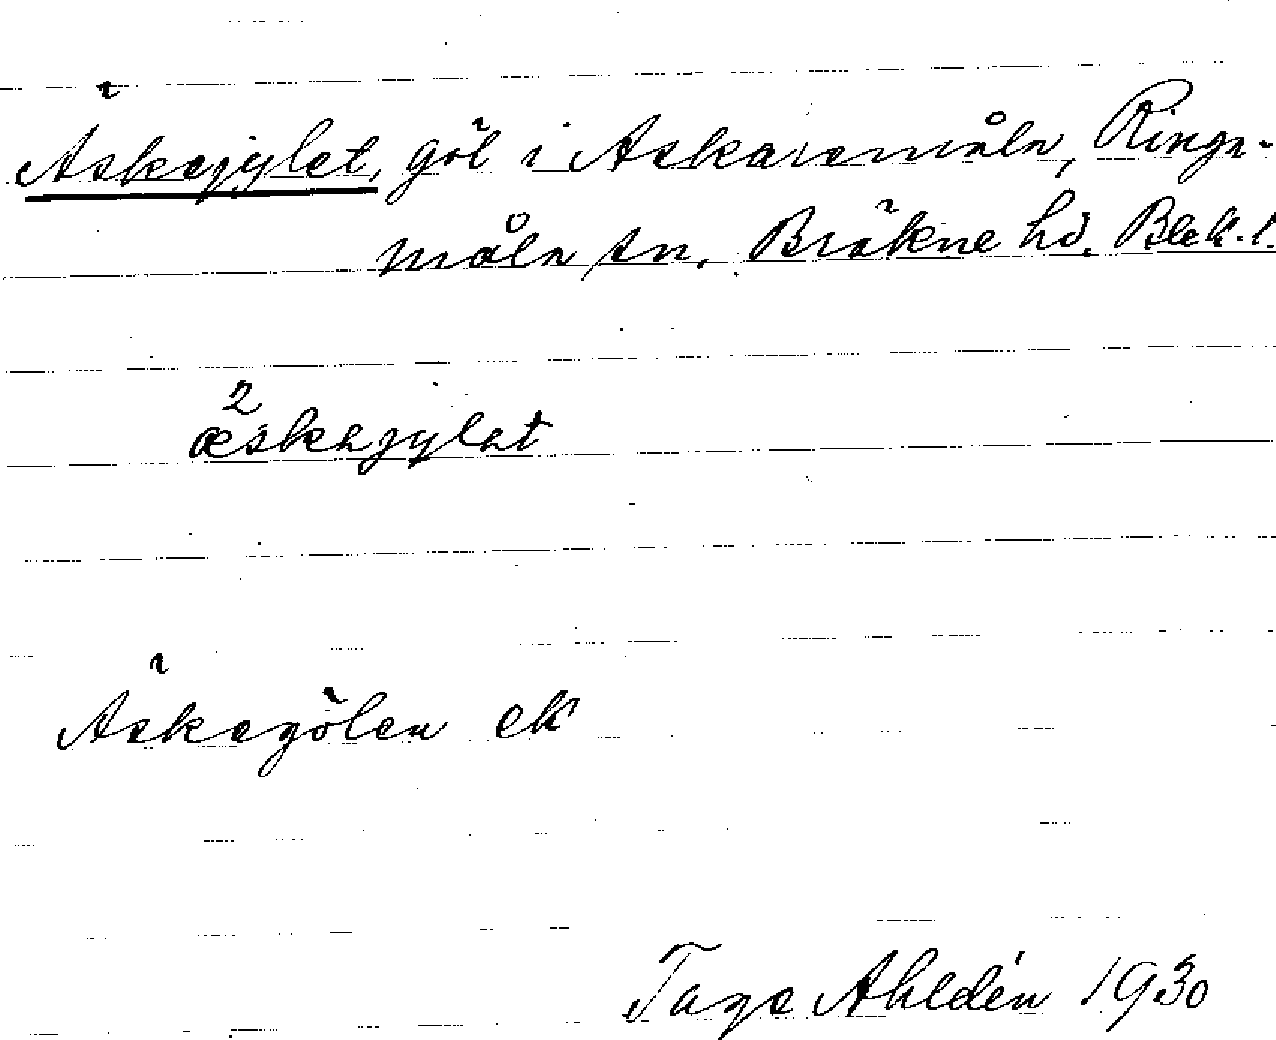 Äskejylet, göl i Askaremåla, Ringa-
måla sn, Bräkne hd, Blek. l.
2
æskejylət
Äskegölen ek
Tage Ahldén 1930